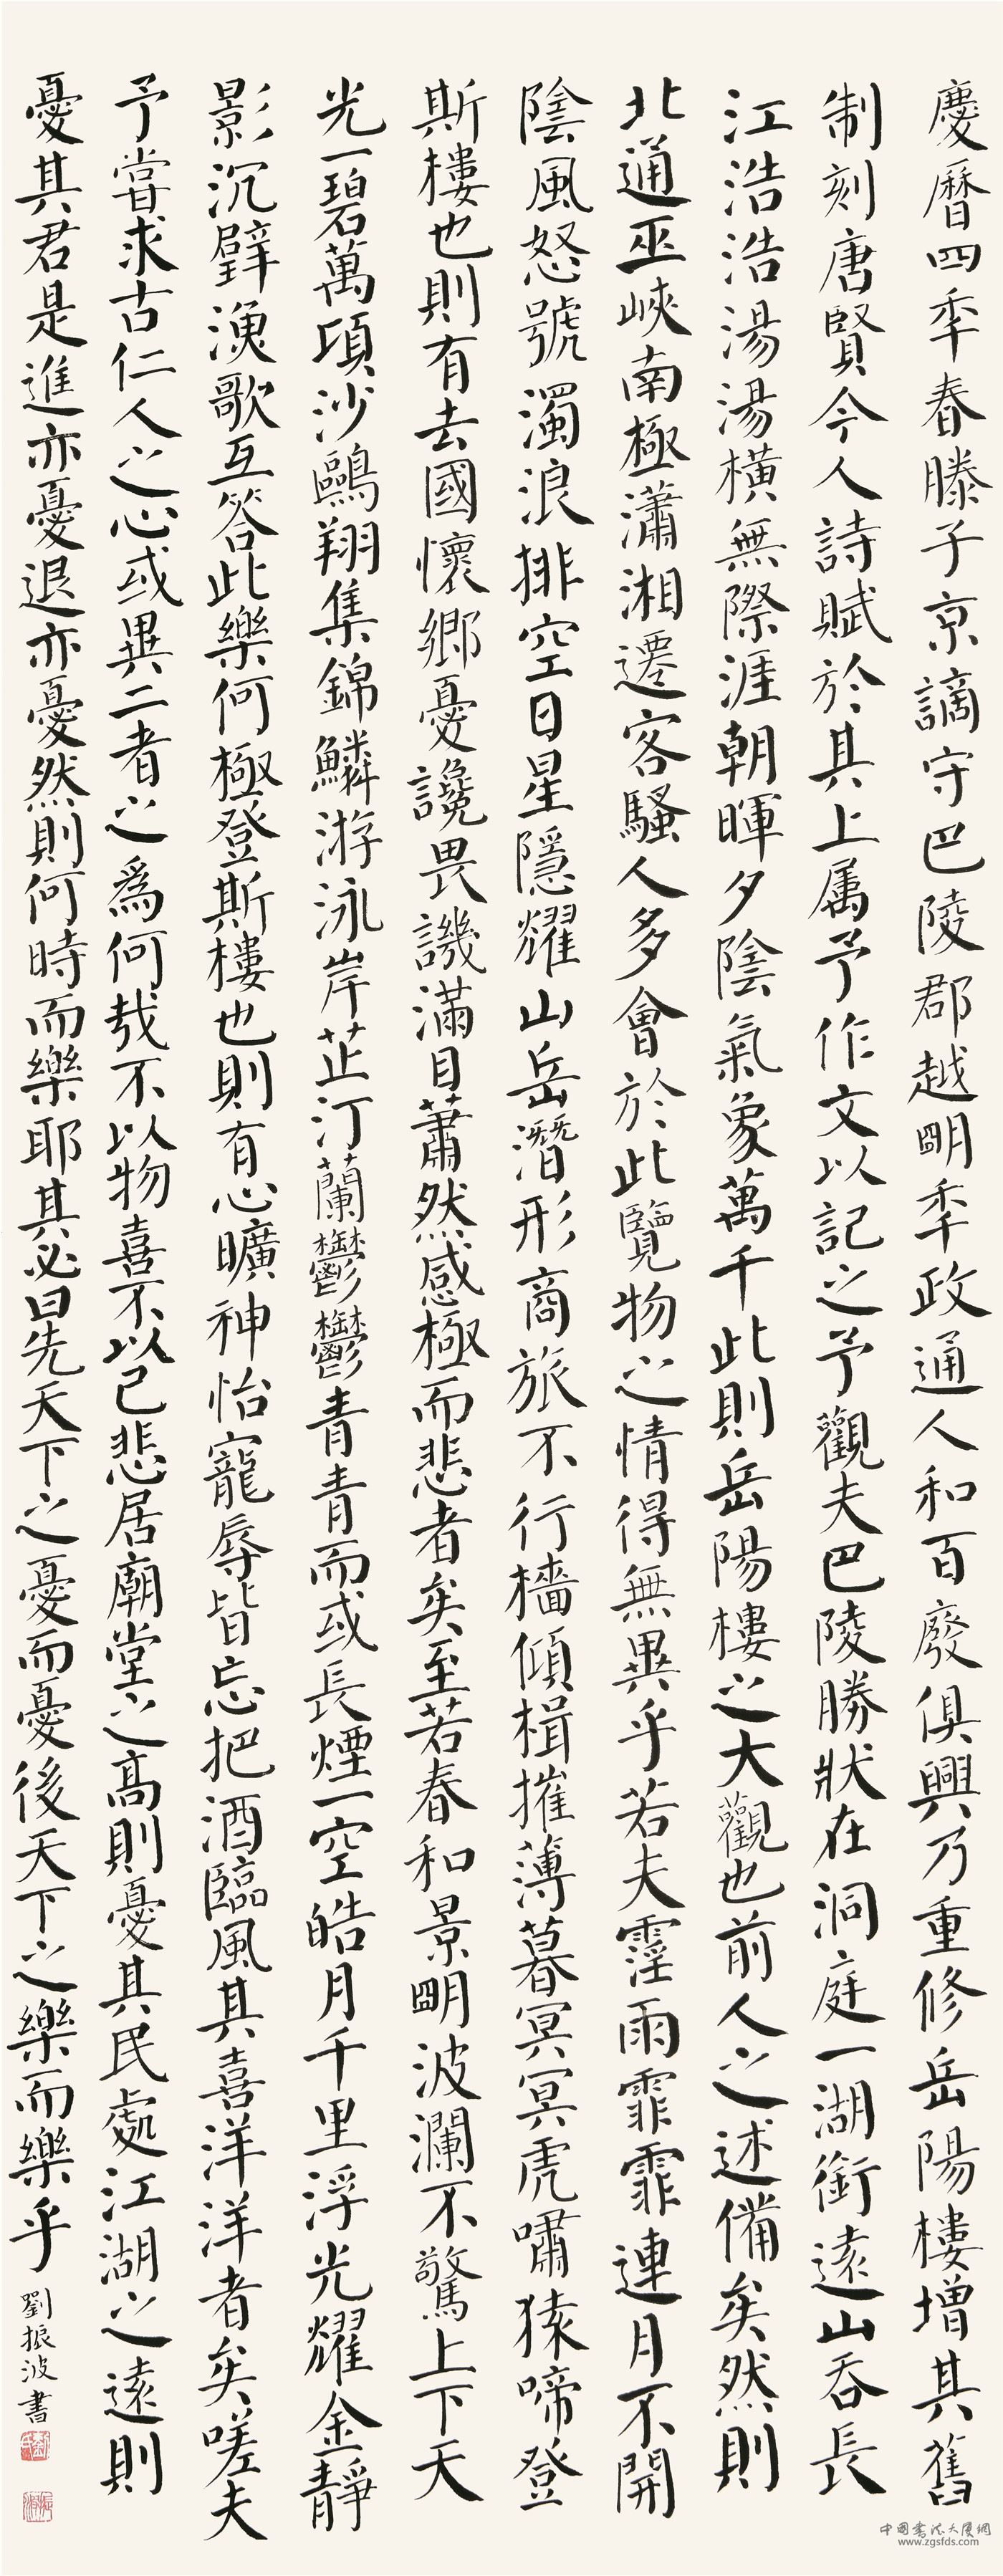 慶曆四秊春滕子京謫守巴陵郡越朙秊政通人和百廢俱興乃重修岳陽樓增其舊
制刻唐賢今人詩賦於其上属予作文以記之予觀夫巴陵勝狀在洞庭一湖銜遠山吞長
江浩浩湯湯橫無際涯朝暉夕陰氣象萬千此則岳陽樓之大觀也前人之述備矣然則
北通巫峽南極瀟湘遷客騷人多會於此覽物之情得無異乎若夫霪雨霏霏連月不開
陰風怒號濁浪排空日星隱耀山岳潛形商旅不行檣傾楫摧薄暮冥冥虎嘯猿啼登
斯樓也則有去國懷鄉憂讒畏譏滿目蕭然感極而悲者矣至若春和景朙波瀾不驚上下天
光一碧萬頃沙鷗翔集錦鱗游泳岸芷汀蘭鬱鬱青青而或長煙一空皓月千里浮光耀金靜
影沉璧漁歌互答此樂何極登斯樓也則有心曠神怡寵辱皆忘把酒臨風其喜洋洋者矣嗟夫
予嘗求古仁人之心或異二者之爲何哉不以物喜不以己悲居廟堂之高則憂其民處江湖之遠則
憂其君是進亦憂退亦憂然則何時而樂耶其必曰先天下之憂而憂後天下之樂而樂乎
劉振波書
中國書法大厦網
www.zgsfds.com